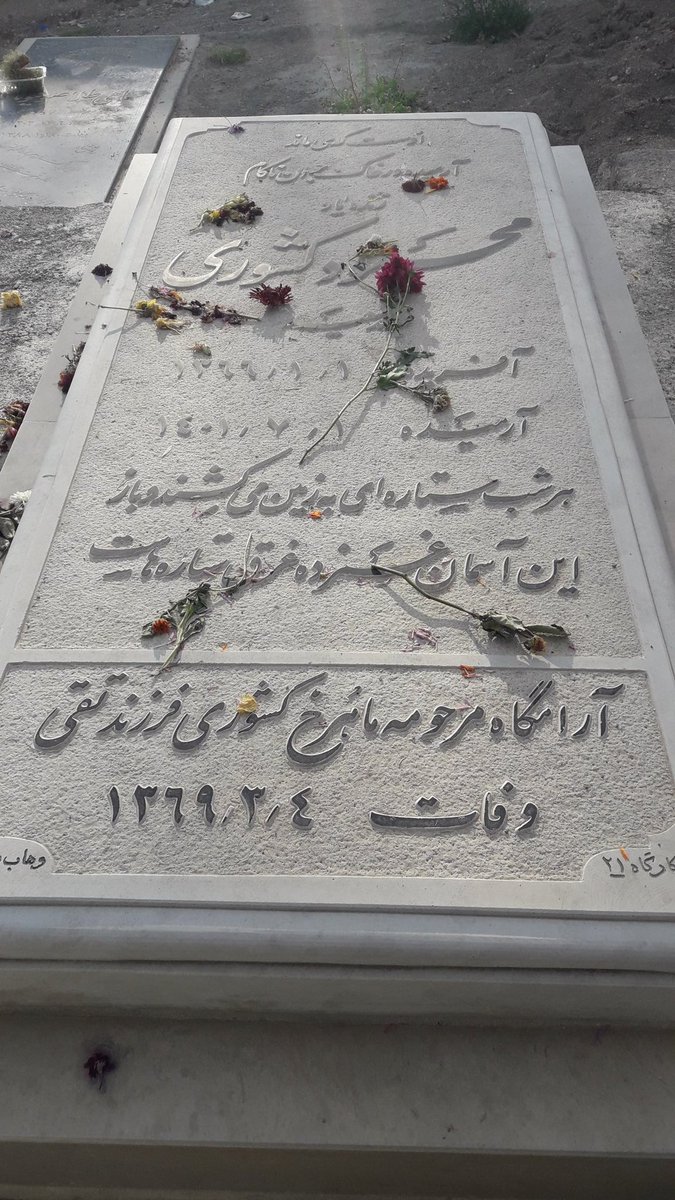 زنده یاد
محمود کشوری
آفریده ۱۳۶۹٫۱٫۱
آرمیده ۱۴۰۱٫۷٫۱
هر شب ستاره ای به زمین می کشند و باز
این آسمان غمزده غرق ستاره هاست
آرامگاه مرحومه ماهرخ کشوری فرزند تقی
وفات ۱۳۶۹٫۳٫۴
وهاب
۲۱